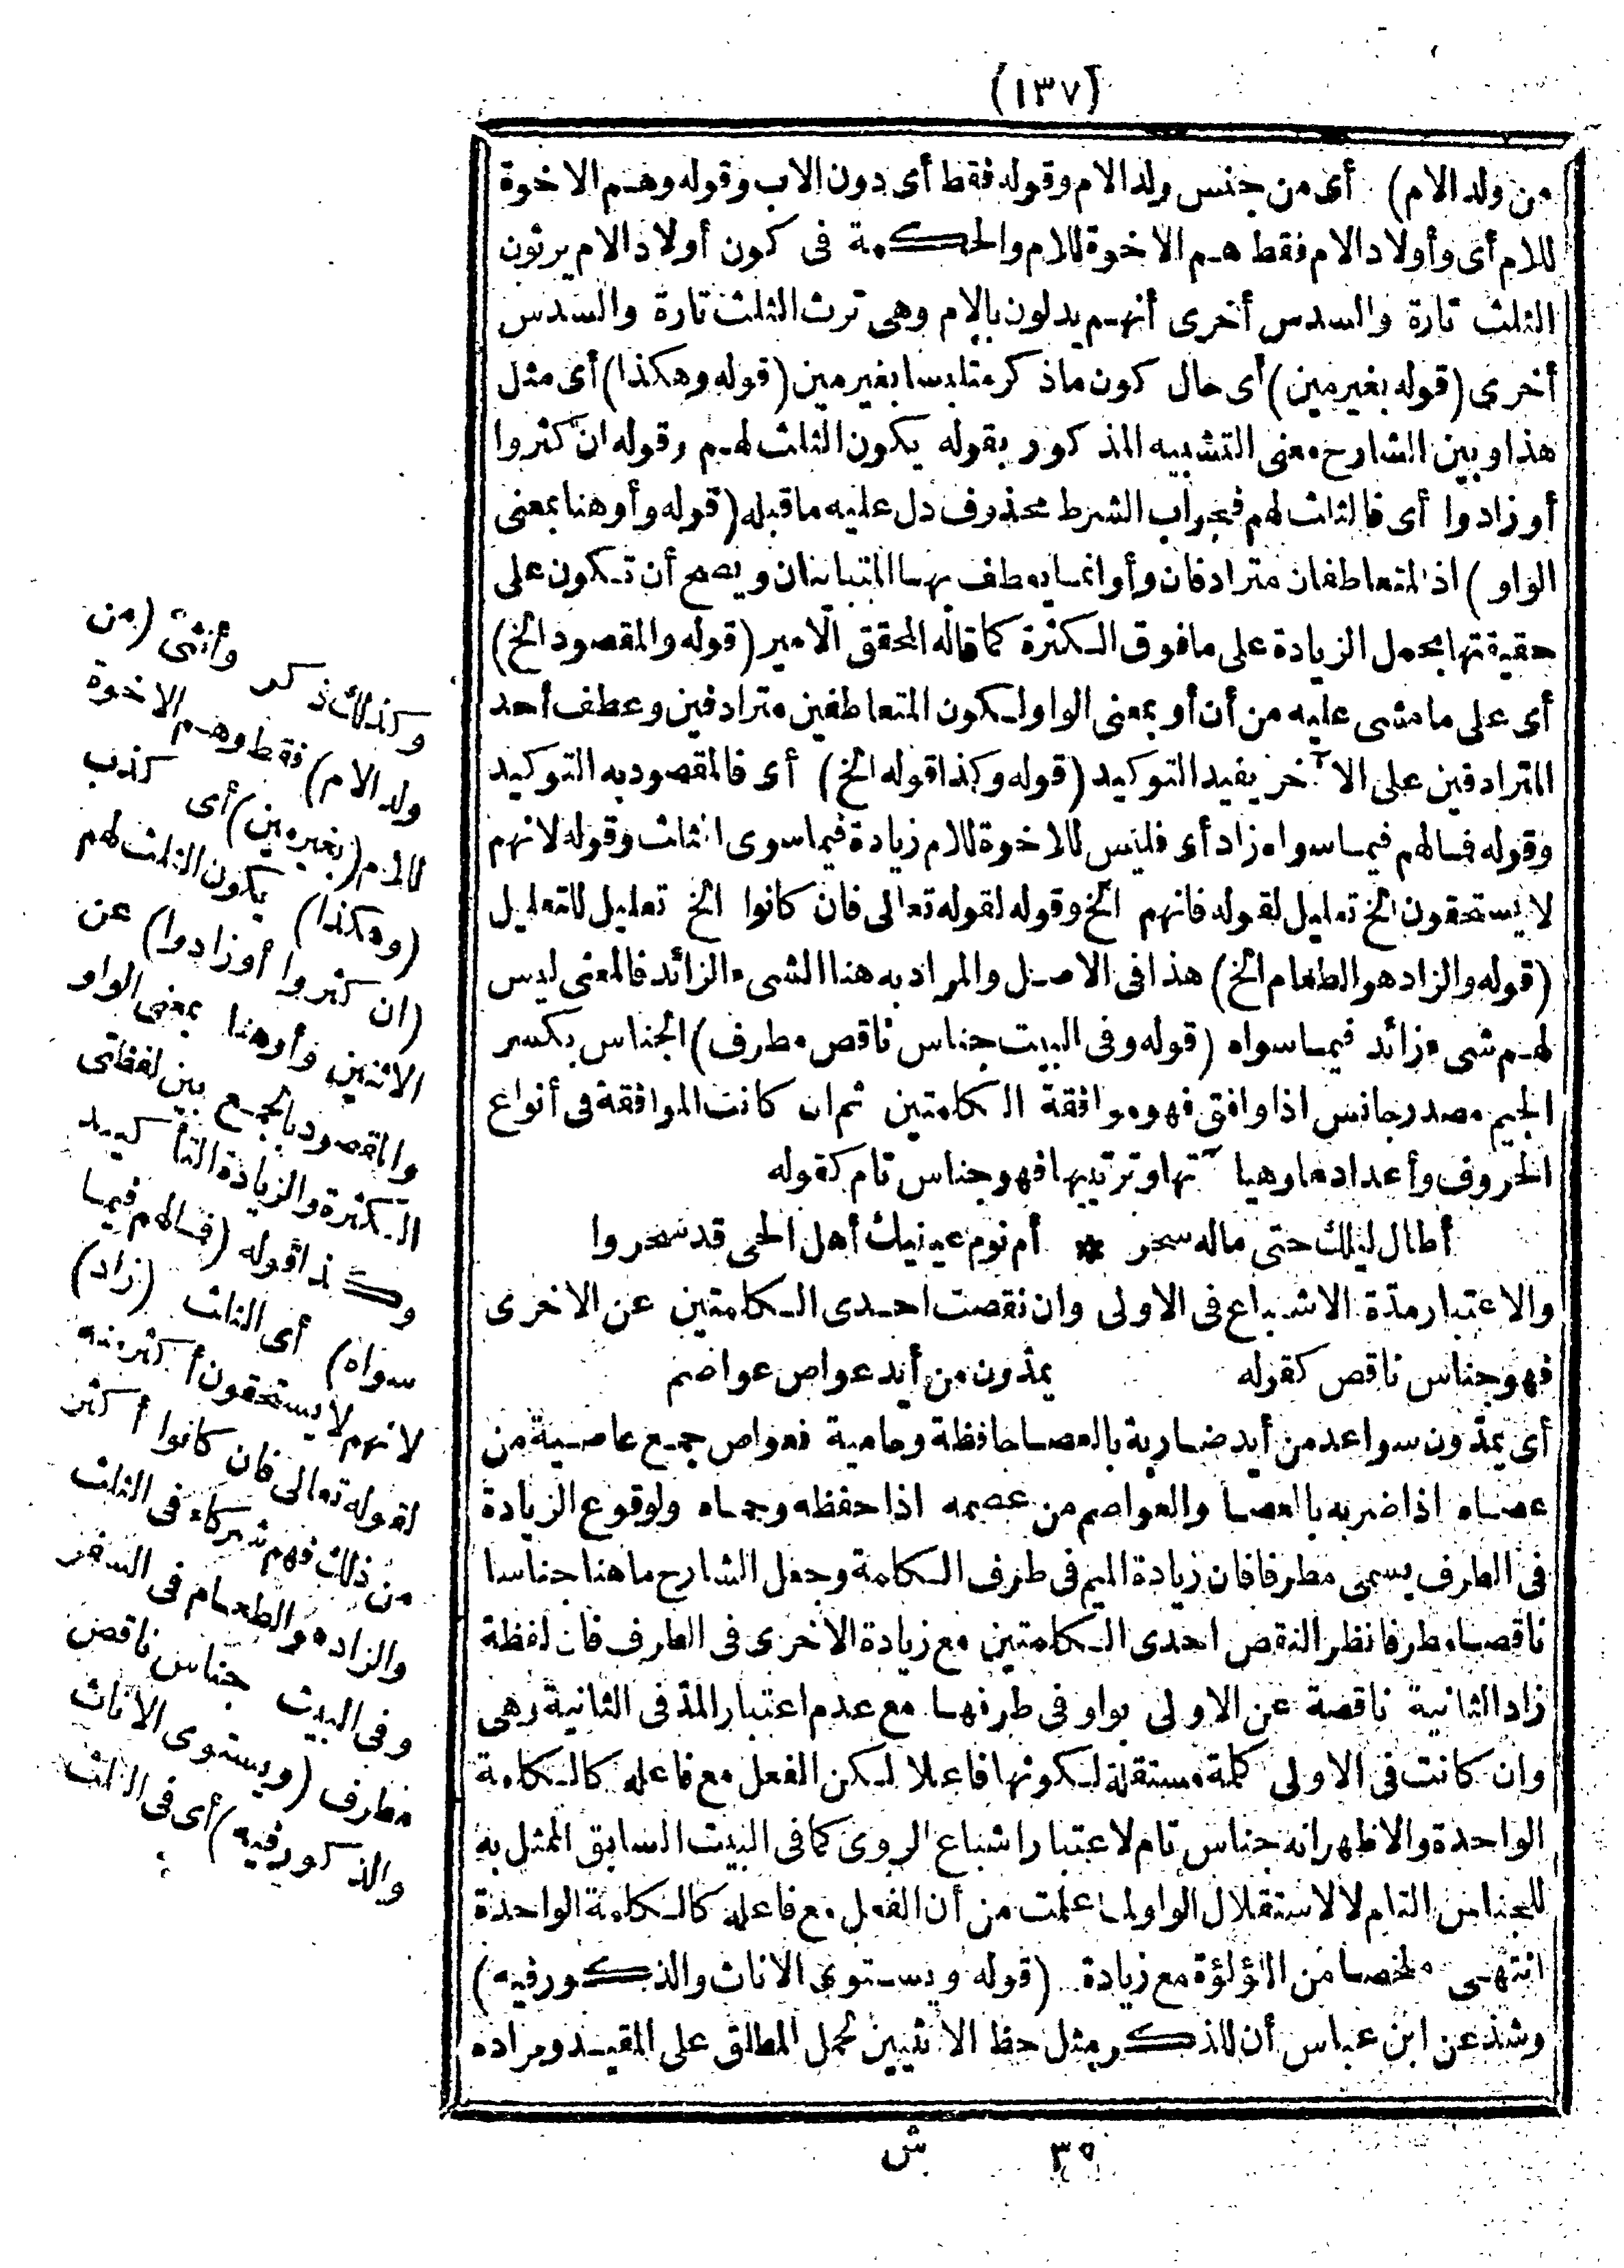 (١٣٧)
من ولد الام) أى من جنس ولد الام وقوله فقط أى دون الاب وقوله وهم الاخوة
للام أى وأولاد الام فقط هم الاخوة للام والحكمة فى كون أولاد الام يرثون
الثلث تارة والسدس أخرى أنهم يدلون بالام وهى ترث الثلث تارة والسدس
أخرى (قوله بغيرمين) أى حال كون ماذكر متلبسا بغيرمين (قوله وهكذا) أى مثل
هذا وبين الشارح معنى التشبيه المذكور بقوله يكون الثلث لهم وقوله ان كثروا
أو زادوا أى فالثلث لهم فجواب الشرط محذوف دل عليه ماقبله (قوله وأو هنا بمعنى
الواو) اذ المتعاطفان مترادفان وأو انما يعطف بها المتباينان ويصح أن تكون على
حقيقتها بحمل الزيادة على مافوق الكثرة كما قاله المحقق الامير (قوله والمقصود الخ)
أى على مامشى عليه من أن أو بمعنى الواو لكون المتعاطفين مترادفين وعطف أحد
المترادفين على الآخر يفيد التوكيد (قوله وكذا قوله الخ) أى فالمقصود به التوكيد
وقوله فمالهم فيماسواه زاد أى فليس للاخوة للام زيادة فيما سوى الثلث وقوله لانهم
لا يستحقون الخ تعليل لقوله فانهم الخ وقوله لقوله تعالى فان كانوا الخ تعليل للتعليل
(قوله والزاد هو الطعام الخ) هذا فى الاصل والمراد به هنا الشىء الزائد فالمعنى ليس
لهم شىء زائد فيماسواه (قوله وفى البيت جناس ناقص مطرف) الجناس بكسر
الجيم مصدر جانس اذا وافق فهو موافقة الكلمتين ثم ان كانت الموافقة فى أنواع
الحروف وأعدادها وهيآتها وترتيبها فهو جناس تام كقوله
أطال ليلك حتى ماله سحر * أم نوم عينيك أهل الحى قد سحروا
والاعتبار مدّة الاشباع فى الاولى وان نقصت احدى الكلمتين عن الاخرى
فهو جناس ناقص كقوله يمدّون من أيد عواص عواصم
أى يمدّون سواعد من أيد ضاربة بالعصا حافظة وحامية فعواص جمع عاصية من
عصاه اذا ضربه بالعصا والعواصم من عصمه اذا حفظه وحماه ولوقوع الزيادة
فى الطرف يسمى مطرفا فان زيادة الميم فى طرف الكلمة وجعل الشارح ماهنا جناسا
ناقصا مطرفا نظر النقص احدى الكلمتين مع زيادة الاخرى فى الطرف فان لفظة
زاد الثانية ناقصة عن الاولى بواو فى طرفها مع عدم اعتبار المدّ فى الثانية وهى
وان كانت فى الاولى كلمة مستقلة لكونها فاعلا لكن الفعل مع فاعله كالكلمة
الواحدة والاظهر انه جناس تام لاعتبار اشباع الروى كما فى البيت السابق الممثل به
للجناس التام لا لاستقلال الواو لما علمت من أن الفعل مع فاعله كالكلمة الواحدة
انتهى ملخصا من اللؤلؤة مع زيادة (قوله ويستوى الاناث والذكور فيه)
وشذ عن ابن عباس أن للذكر مثل حظ الانثيين لحمل المطلق على المقيد ومراده
وكذلك ذكر وأنثى (من
ولد الام) فقط وهم الاخوة
للام (بغيرمين) أى كذب
(وهكذا) يكون الثلث لهم
(ان كثروا أو زادوا) عن
الاثنين وأو هنا بمعنى الواو
والمقصود بالجمع بين لفظتى
الكثرة والزيادة التأكيد
وكذا قوله (فمالهم فيما
سواه) أى الثلث (زاد)
لانهم لا يستحقون أكثر منه
لقوله تعالى فان كانوا أكثر
من ذلك فهم شركاء فى الثلث
والزاد هو الطعام فى السفر
وفى البيت جناس ناقص
مطرف (ويستوى الاناث
والذكور فيه) أى فى الثلث
٣٥ ش